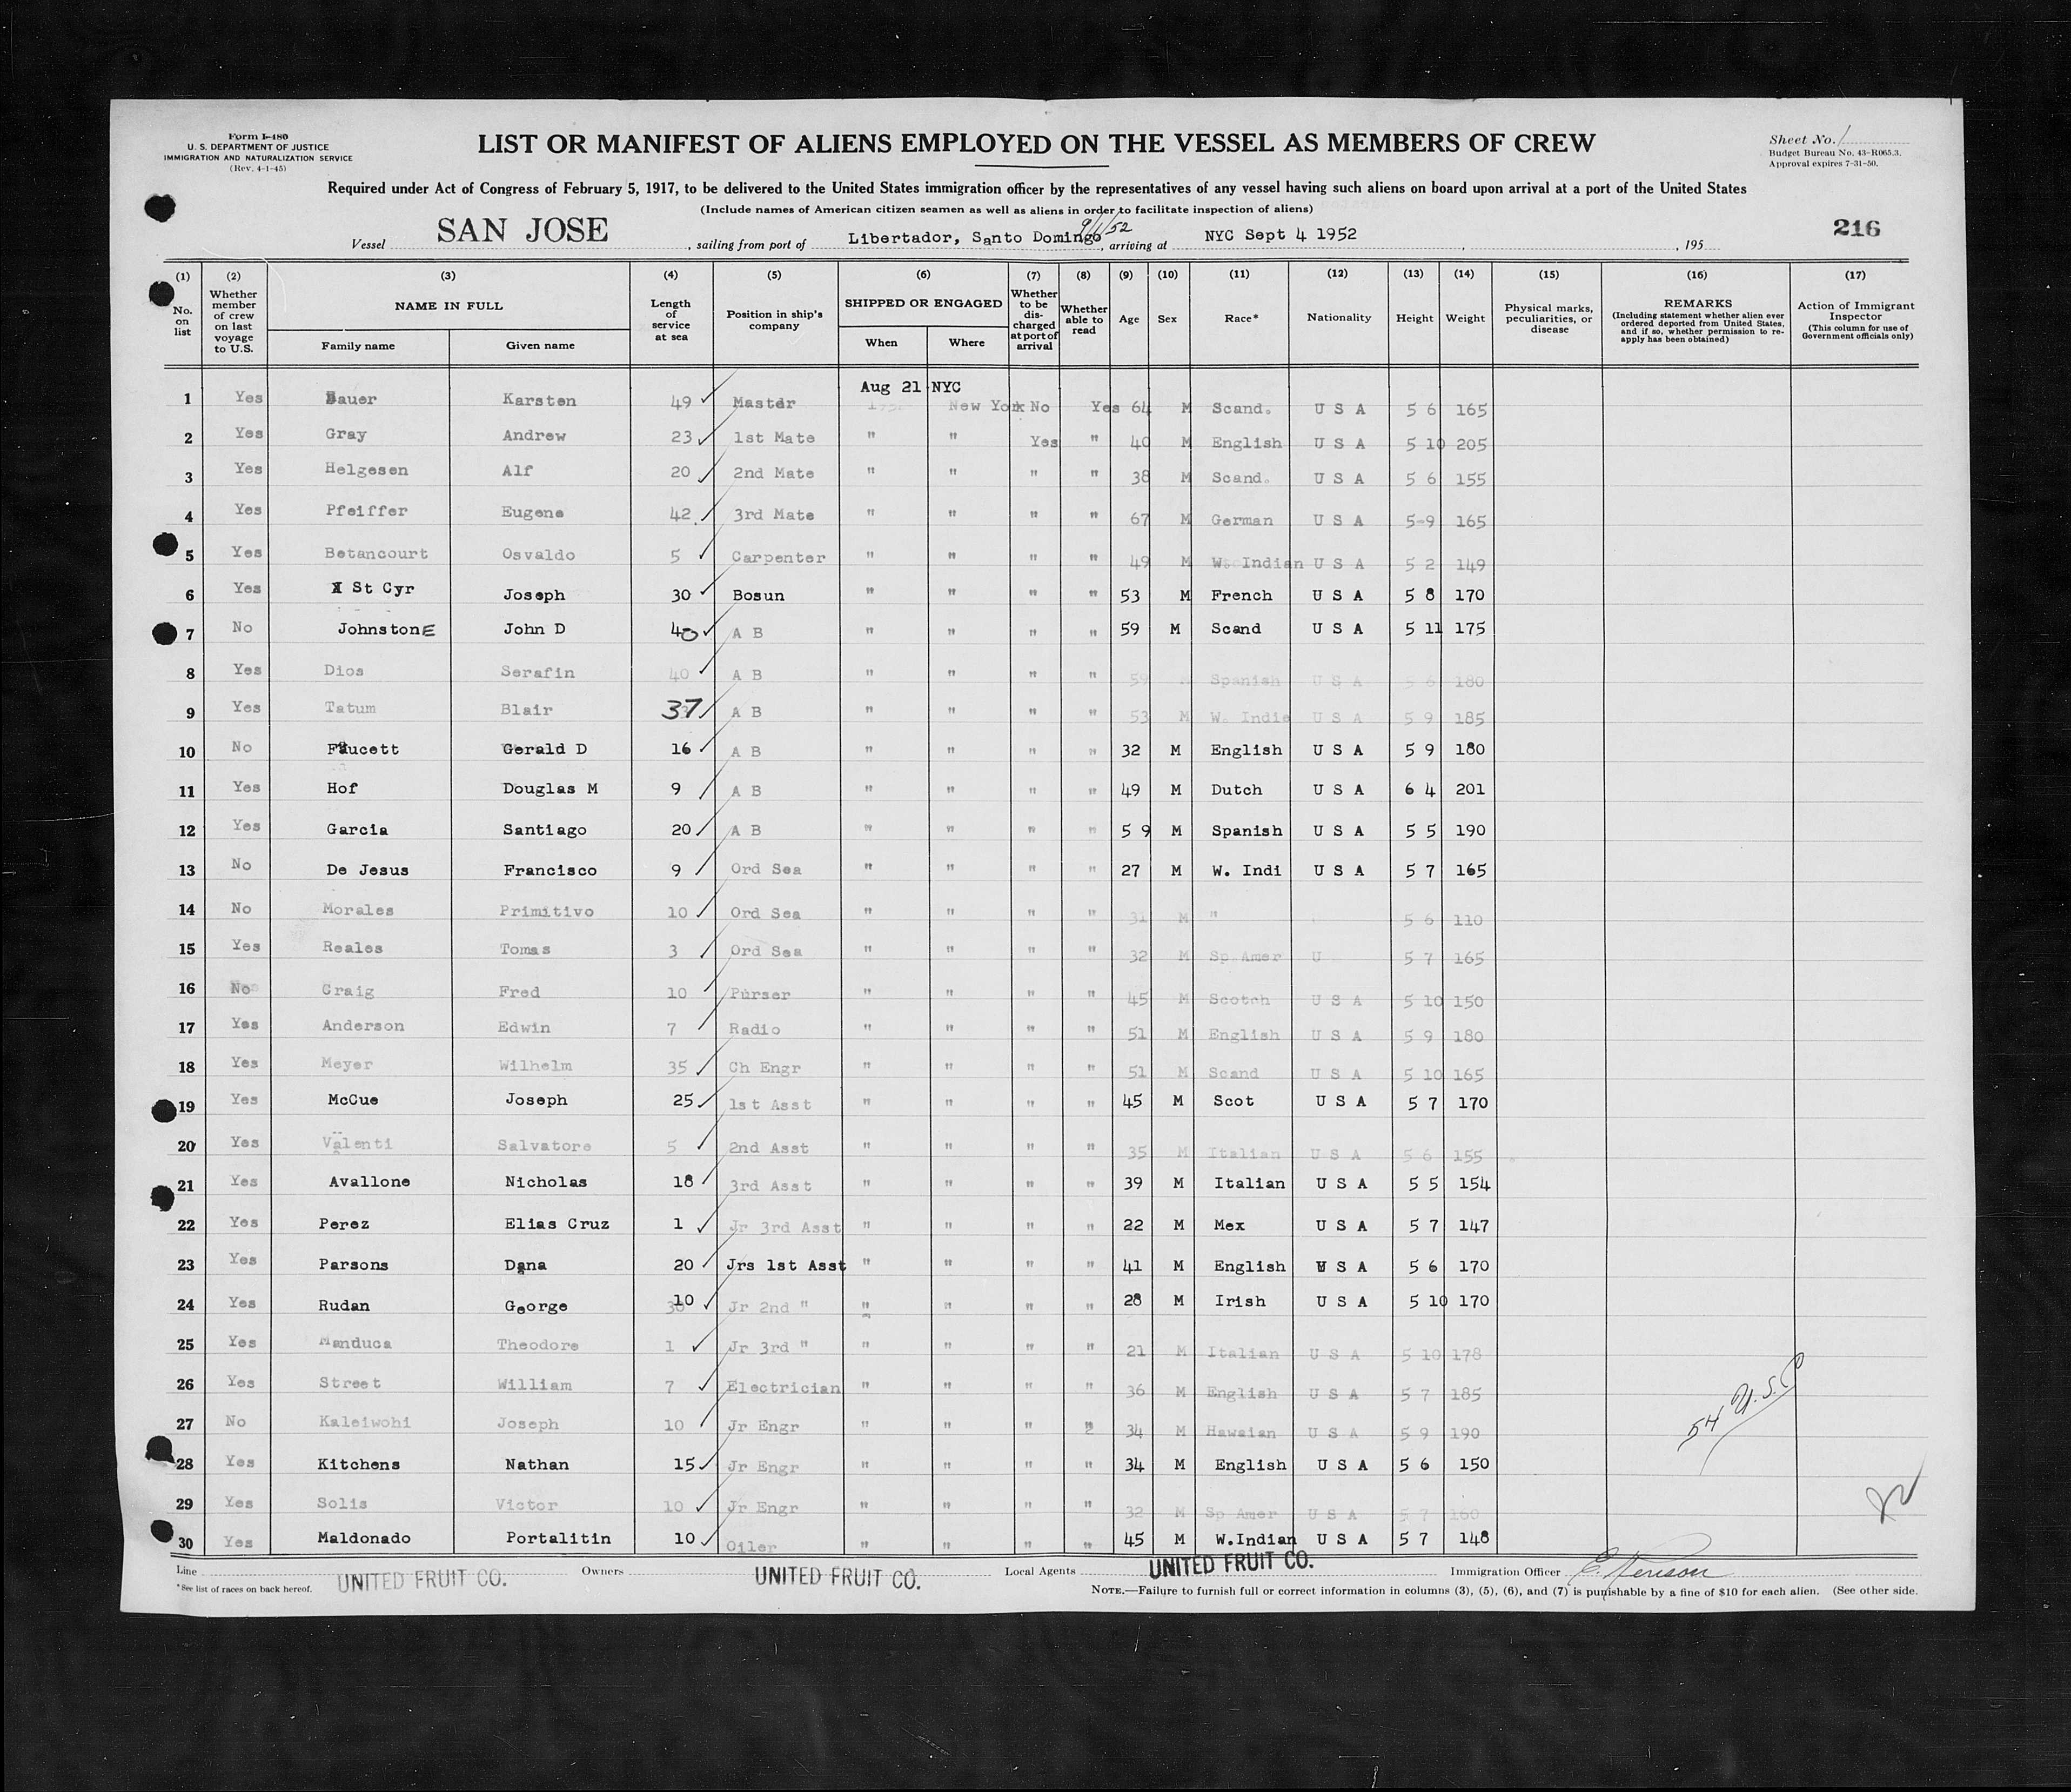 Form I-480
U. S. DEPARTMENT OF JUSTICE
IMMIGRATION AND NATURALIZATION SERVICE
(Rev. 4-1-45)
LIST OR MANIFEST OF ALIENS EMPLOYED ON THE VESSEL AS MEMBERS OF CREW
Sheet No. 1
Budget Bureau No. 43-R065.3.
Approval expires 7-31-50.
Required under Act of Congress of February 5, 1917, to be delivered to the United States immigration officer by the representatives of any vessel having such aliens on board upon arrival at a port of the United States
(Include names of American citizen seamen as well as aliens in order to facilitate inspection of aliens)
9/1/52
216
Vessel SAN JOSE, sailing from port of Libertador, Santo Domingo, arriving at NYC Sept 4 1952, 195
(1) (2) (3) (4) (5) (6) (7) (8) (9) (10) (11) (12) (13) (14) (15) (16) (17)
No. on list | Whether member of crew on last voyage to U.S. | NAME IN FULL Family name Given name | Length of service at sea | Position in ship's company | SHIPPED OR ENGAGED When Where | Whether to be discharged at port of arrival | Whether able to read | Age | Sex | Race* | Nationality | Height | Weight | Physical marks, peculiarities, or disease | REMARKS (Including statement whether alien ever ordered deported from United States, and if so, whether permission to reapply has been obtained) | Action of Immigrant Inspector (This column for use of Government officials only)
Aug 21 NYC
1 Yes Bauer Karsten 49 Master New York No Yes 64 M Scand. U S A 5 6 165
2 Yes Gray Andrew 23 1st Mate " " Yes " 40 M English U S A 5 10 205
3 Yes Helgesen Alf 20 2nd Mate " " " " 38 M Scand. U S A 5 6 155
4 Yes Pfeiffer Eugene 42 3rd Mate " " " " 67 M German U S A 5-9 165
5 Yes Betancourt Osvaldo 5 Carpenter " " " " 49 M W. Indian U S A 5 2 149
6 Yes St Cyr Joseph 30 Bosun " " " " 53 M French U S A 5 8 170
7 No JohnstonE John D 40 A B " " " " 59 M Scand U S A 5 11 175
8 Yes Dios Serafin 40 A B " " " " 59 M Spanish U S A 5 6 180
9 Yes Tatum Blair 37 A B " " " " 53 M W. Indie U S A 5 9 185
10 No Faucett Gerald D 16 A B " " " " 32 M English U S A 5 9 180
11 Yes Hof Douglas M 9 A B " " " " 49 M Dutch U S A 6 4 201
12 Yes Garcia Santiago 20 A B " " " " 5 9 M Spanish U S A 5 5 190
13 No De Jesus Francisco 9 Ord Sea " " " " 27 M W. Indi U S A 5 7 165
14 No Morales Primitivo 10 Ord Sea " " " " 31 M " 5 6 110
15 Yes Reales Tomas 3 Ord Sea " " " " 32 M Sp Amer U 5 7 165
16 No Craig Fred 10 Purser " " " " 45 M Scotch U S A 5 10 150
17 Yes Anderson Edwin 7 Radio " " " " 51 M English U S A 5 9 180
18 Yes Meyer Wilhelm 35 Ch Engr " " " " 51 M Scand U S A 5 10 165
19 Yes McCue Joseph 25 1st Asst " " " " 45 M Scot U S A 5 7 170
20 Yes Valenti Salvatore 5 2nd Asst " " " " 35 M Italian U S A 5 6 155
21 Yes Avallone Nicholas 18 3rd Asst " " " " 39 M Italian U S A 5 5 154
22 Yes Perez Elias Cruz 1 Jr 3rd Asst " " " " 22 M Mex U S A 5 7 147
23 Yes Parsons Dana 20 Jrs 1st Asst " " " " 41 M English U S A 5 6 170
24 Yes Rudan George 10 Jr 2nd " " " " " 28 M Irish U S A 5 10 170
25 Yes Manduca Theodore 1 Jr 3rd " " " " " 21 M Italian U S A 5 10 178
26 Yes Street William 7 Electrician " " " " 36 M English U S A 5 7 185
27 No Kaleiwohi Joseph 10 Jr Engr " " " " 34 M Hawaian U S A 5 9 190
28 Yes Kitchens Nathan 15 Jr Engr " " " " 34 M English U S A 5 6 150
29 Yes Solis Victor 10 Jr Engr " " " " 32 M Sp Amer U S A 5 7 160
30 Yes Maldonado Portalitin 10 Oiler " " " " 45 M W.Indian U S A 5 7 148
54 U.S.C
Line UNITED FRUIT CO. Owners UNITED FRUIT CO. Local Agents UNITED FRUIT CO. Immigration Officer
*See list of races on back hereof.
NOTE.—Failure to furnish full or correct information in columns (3), (5), (6), and (7) is punishable by a fine of $10 for each alien. (See other side.